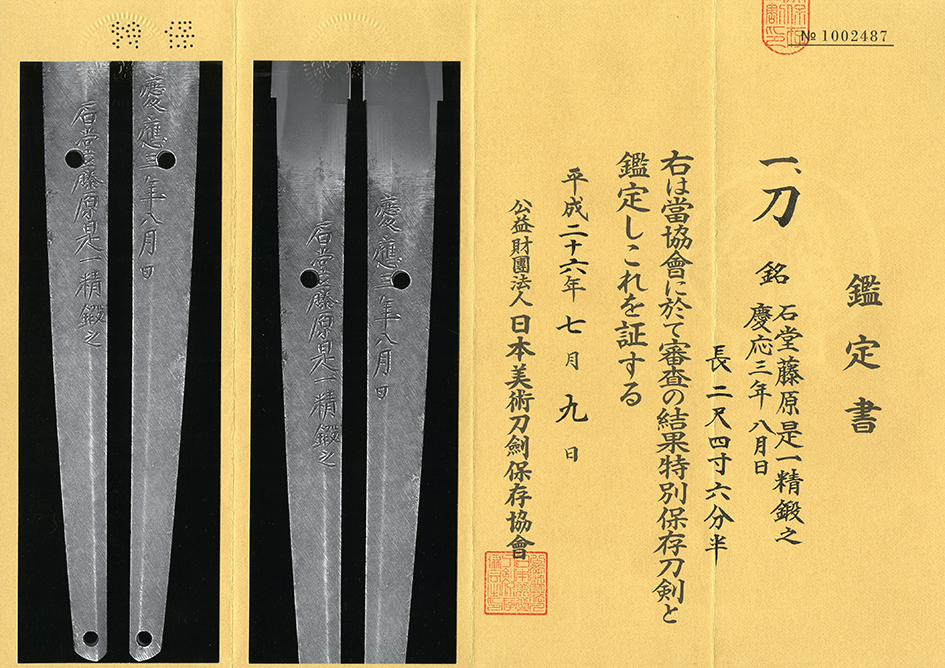 № 1002487
鑑定書
一、刀 銘 石堂藤原是一精鍛之
慶応三年八月日
長 二尺四寸六分半
右は當協會に於て審査の結果特別保存刀剣と
鑑定しこれを証する
平成二十六年 七月 九日
公益財團法人 日本美術刀剣保存協會
慶應三年八月日
石堂藤原是一精鍛之
慶應三年八月日
石堂藤原是一精鍛之